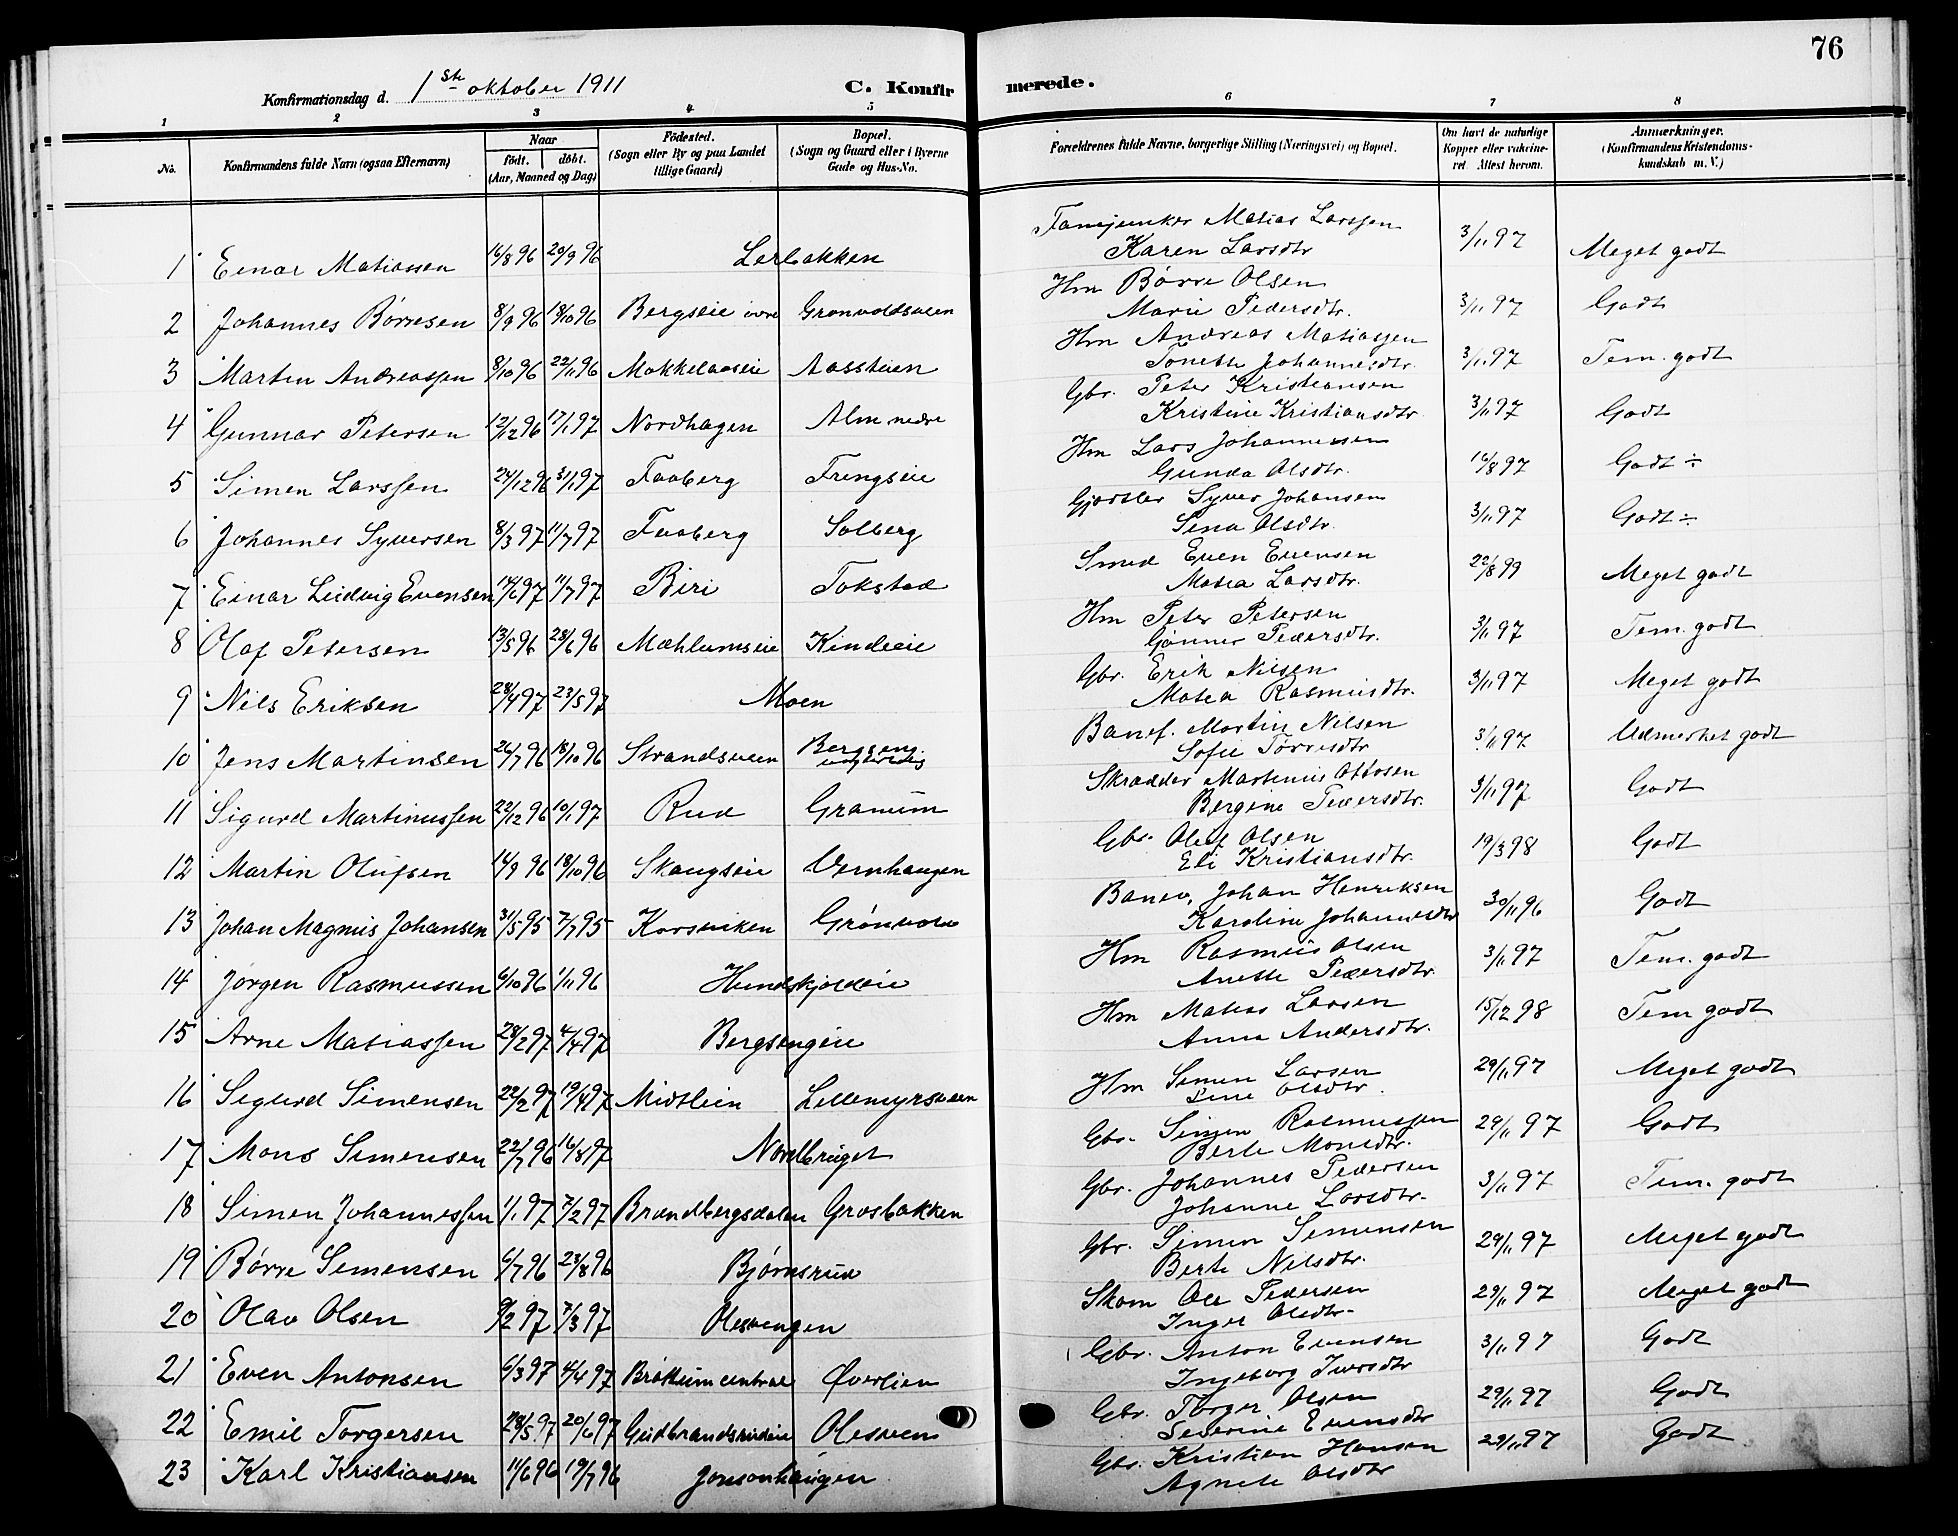 76
Konfirmationsdag d. 1ste oktober 1911
C. Konfir merede.
1 2 3 4 5 6 7 8
No. Konfirmandens fulde Navn (ogsaa Efternavn) Naar født. døbt. (Aar, Maaned og Dag) Fødested. (Sogn eller By og paa Landet tillige Gaard) Bopæl. (Sogn og Gaard eller i Byerne Gade og Hus-No. Forældrenes fulde Navne, borgerlige Stilling (Næringsvei) og Bopæl. Om havt de naturlige Kopper eller vakcineret. Attest herom. Anmærkninger. (Konfirmandens Kristendomskundskab m. V.)
1 Einar Matiassen 16/8 96 20/9 96 Lerbakken Fanejunker Matias Larssen Karen Larsdtr 3/11 97 Meget godt
2 Johannes Børresen 8/9 96 18/10 96 Bergseie øvre Grønvoldsveen Hm Børre Olsen Marie Pedersdtr. 3/11 97 Godt
3 Martin Andreassen 8/10 96 22/11 96 Mokkelaaseie Aassteien Hm Andreas Matiassen Tonette Johannesdtr. 3/11 97 Tem. godt
4 Gunnar Petersen 12/12 96 17/1 97 Nordhagen Alm nedre Gbr. Peter Kristiansen Kristine Kristiansdtr. 3/11 97 Godt
5 Simen Larssen 24/12 96 31/1 97 Faaberg Frengseie Hm Lars Johannessen Gunda Olsdtr. 16/8 97 Godt ÷
6 Johannes Syversen 8/3 97 11/7 97 Faaberg Solberg Gjørtler Syver Johansen Sina Olsdtr. 3/11 97 Godt ÷
7 Einar Ludvig Evensen 14/6 97 11/7 97 Biri Tokstad Smed Even Evensen Matea Larsdtr. 22/8 99 Meget godt
8 Olaf Petersen 13/5 96 28/6 96 Mæhlumseie Kindeeie Hm Peter Petersen Gønner Pedersdtr. 3/11 97 Tem. godt
9 Nils Eriksen 28/4 97 23/5 97 Moen Gbr. Erik Nilsen Matea Rasmusdtr. 3/11 97 Meget godt
10 Jens Martinsen 26/7 96 18/10 96 Strandsveen Bergseng Banef. Martin Nilsen Sofie Tørresdtr 3/11 97 Udmerket godt
11 Sigurd Martinussen 22/12 96 10/1 97 Rud Granum Skrædder Martinus Ottosen Bergine Pedersdtr. 3/11 97 Godt
12 Martin Olufsen 14/9 96 18/10 96 Skougseie Vernhaugen Gbr. Oluf Olsen Eli Kristiansdtr. 19/3 98 Godt
13 Johan Magnus Johansen 31/5 95 7/7 95 Korsviken Grønvold Banev. Johan Henriksen Karoline Johannesdtr 30/11 96 Godt
14 Jørgen Rasmussen 6/10 96 1/11 96 Hundskjoldeie Hm Rasmus Olsen Anette Pedersdtr. 3/11 97 Tem. godt
15 Arne Matiassen 28/2 97 4/4 97 Bergsengeie Hm Matias Larsen Anna Andersdtr. 15/12 98 Tem godt
16 Sigurd Simensen 22/2 97 19/4 97 Midtlien Lillemyrsveen Hm Simen Larsen Line Olsdtr. 29/11 97 Meget godt
17 Mons Simensen 22/7 96 16/8 97 Nordbruget Gbr. Simen Rasmussen Berte Monsdtr. 29/11 97 Godt
18 Simen Johannessen 1/1 97 7/2 97 Brændbergsdalen Græsbakken Gbr. Johannes Pedersen Johanne Larsdtr. 3/11 97 Tem. godt
19 Børre Simensen 6/7 96 23/8 96 Bjørnsrud Gbr. Simen Simensen Berte Nilsdtr. 29/11 97 Meget godt
20 Olav Olsen 9/2 97 7/3 97 Olesvengen Skom Ole Pedersen Inger Olsdtr. 29/11 97 Meget godt
21 Even Antonsen 6/3 97 4/4 97 Brøttum central Øverlien Gbr. Anton Evensen Ingeborg Iversdtr 3/11 97 Godt
22 Emil Torgersen 28/5 97 20/6 97 Gudbrandsrudeie Olesveen Gbr. Torger Olsen Severine Evensdtr 29/11 97 Godt
23 Karl Kristiansen 11/6 96 19/7 96 Jonsonhaugen Gbr. Kristian Hansen Agnete Olsdtr 29/11 97 Godt